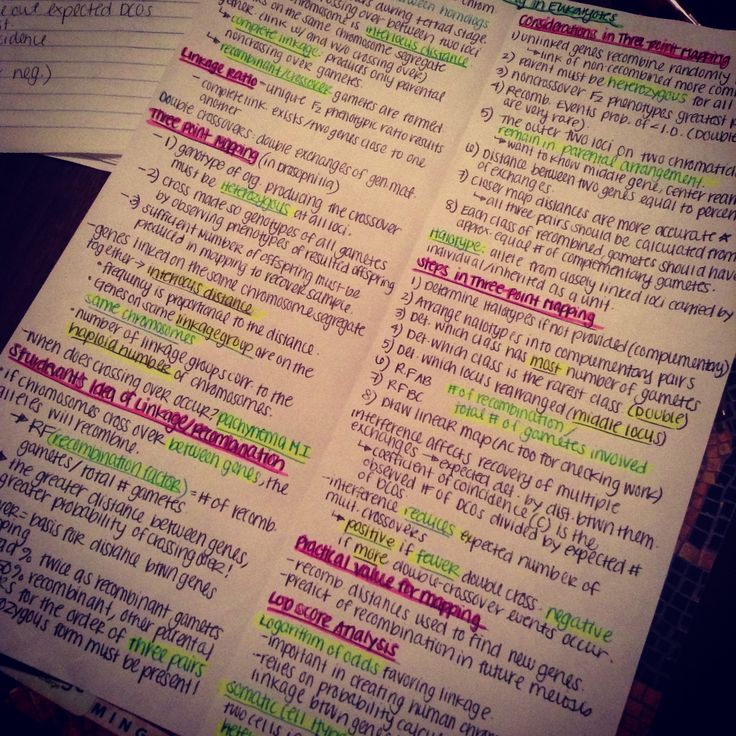 eout expected DCOS
st
cidence.
neg.)
chism
homologs
during tetrad stage.
crossing over between two loci
on the same chromosome segregate
chromosome is interlocus distance
gether. (link w/ and w/o crossing over)
complete linkage: produces only parental
noncrossing over gametes.
recombinant/crossover gametes are formed
Linkage Ratio - unique F2 phenotypic ratio results
- complete link exists/two genes close to one
another
Double crossovers: double exchanges of gen. mat.
Three point Mapping (in Drosophilia)
- 1) genotype of org. producing the crossover
must be heterozygous at all loci.
- 2) cross made so genotypes of all gametes
by observing phenotypes of resulted offspring
- 3) sufficient numbers of offspring must be
produced in mapping to recover sample.
- genes linked on the same chromosome segregate
together → interlocus distance
• frequency is proportional to the distance.
- genes on same linkage group are on the
same chromosomes
• number of linkage groups corr. to the
haploid number of chromosomes.
- when does crossing over occur? pachynema M.I
Sturdivant's Idea of Linkage/recombination
• if chromosomes cross over between genes, the
alleles will recombine.
→ RF (recombination factor) = # of recomb.
gametes/total # gametes
the greater distance between genes,
greater probability of crossing over!
over = basis for distance btwn genes
pping
ad % twice as recombinant gametes
50% recombinant, other parental
s for the order of three pairs
ozygous form must be present!
g in Eukaryotes
Considerations in Three Point Mapping
1) unlinked genes recombine randomly
→ link of non recombined more com
2) Parent must be heterozygous for all
3) noncrossover F2 phenotypes greatest
4) Recomb. Events prob. of < 1.0. (Double
are very rare)
5) The outer two loci on two chromatid
remain in parental arrangement.
→ want to know middle gene, center rear
6) Distance between two genes equal to percen
of exchanges.
7) Closer map distances are more accurate *
→ all three pairs should be calculated from
8) Each class of recombined gametes should have
approx. equal # of complementary gametes.
Halotype: allele from closely linked loci carried by
individual/inherited as a unit.
Steps in Three-point Mapping
1) Determine halotypes if not provided (complementary)
2) Arrange halotypes into complementary pairs
3) Det. which class has most number of gametes
4) Det. which class is the rarest class (Double)
5) Det. which locus rearranged (middle locus)
6) RF AB # of recombination/
7) RF BC total # of gametes involved
8) Draw linear map (AC too for checking work)
interference affects recovery of multiple
exchanges → expected det. by dist. btwn them.
→ coefficient of coincidence (c) is the
observed # of DCOs divided by expected #
of DCOs.
- interference reduces expected number of
mult. crossovers
→ positive if fewer double cross. negative
if more double-crossover events occur.
Practical Value for Mapping
- recomb distances used to find new genes.
- predict of recombination in future meiosis
LOD Score Analysis
Logarithm of odds favoring linkage.
- important in creating human chr
- relies on probability calcula
linkage btwn gene
Somatic Cell Hy
two cells i
heter
MING